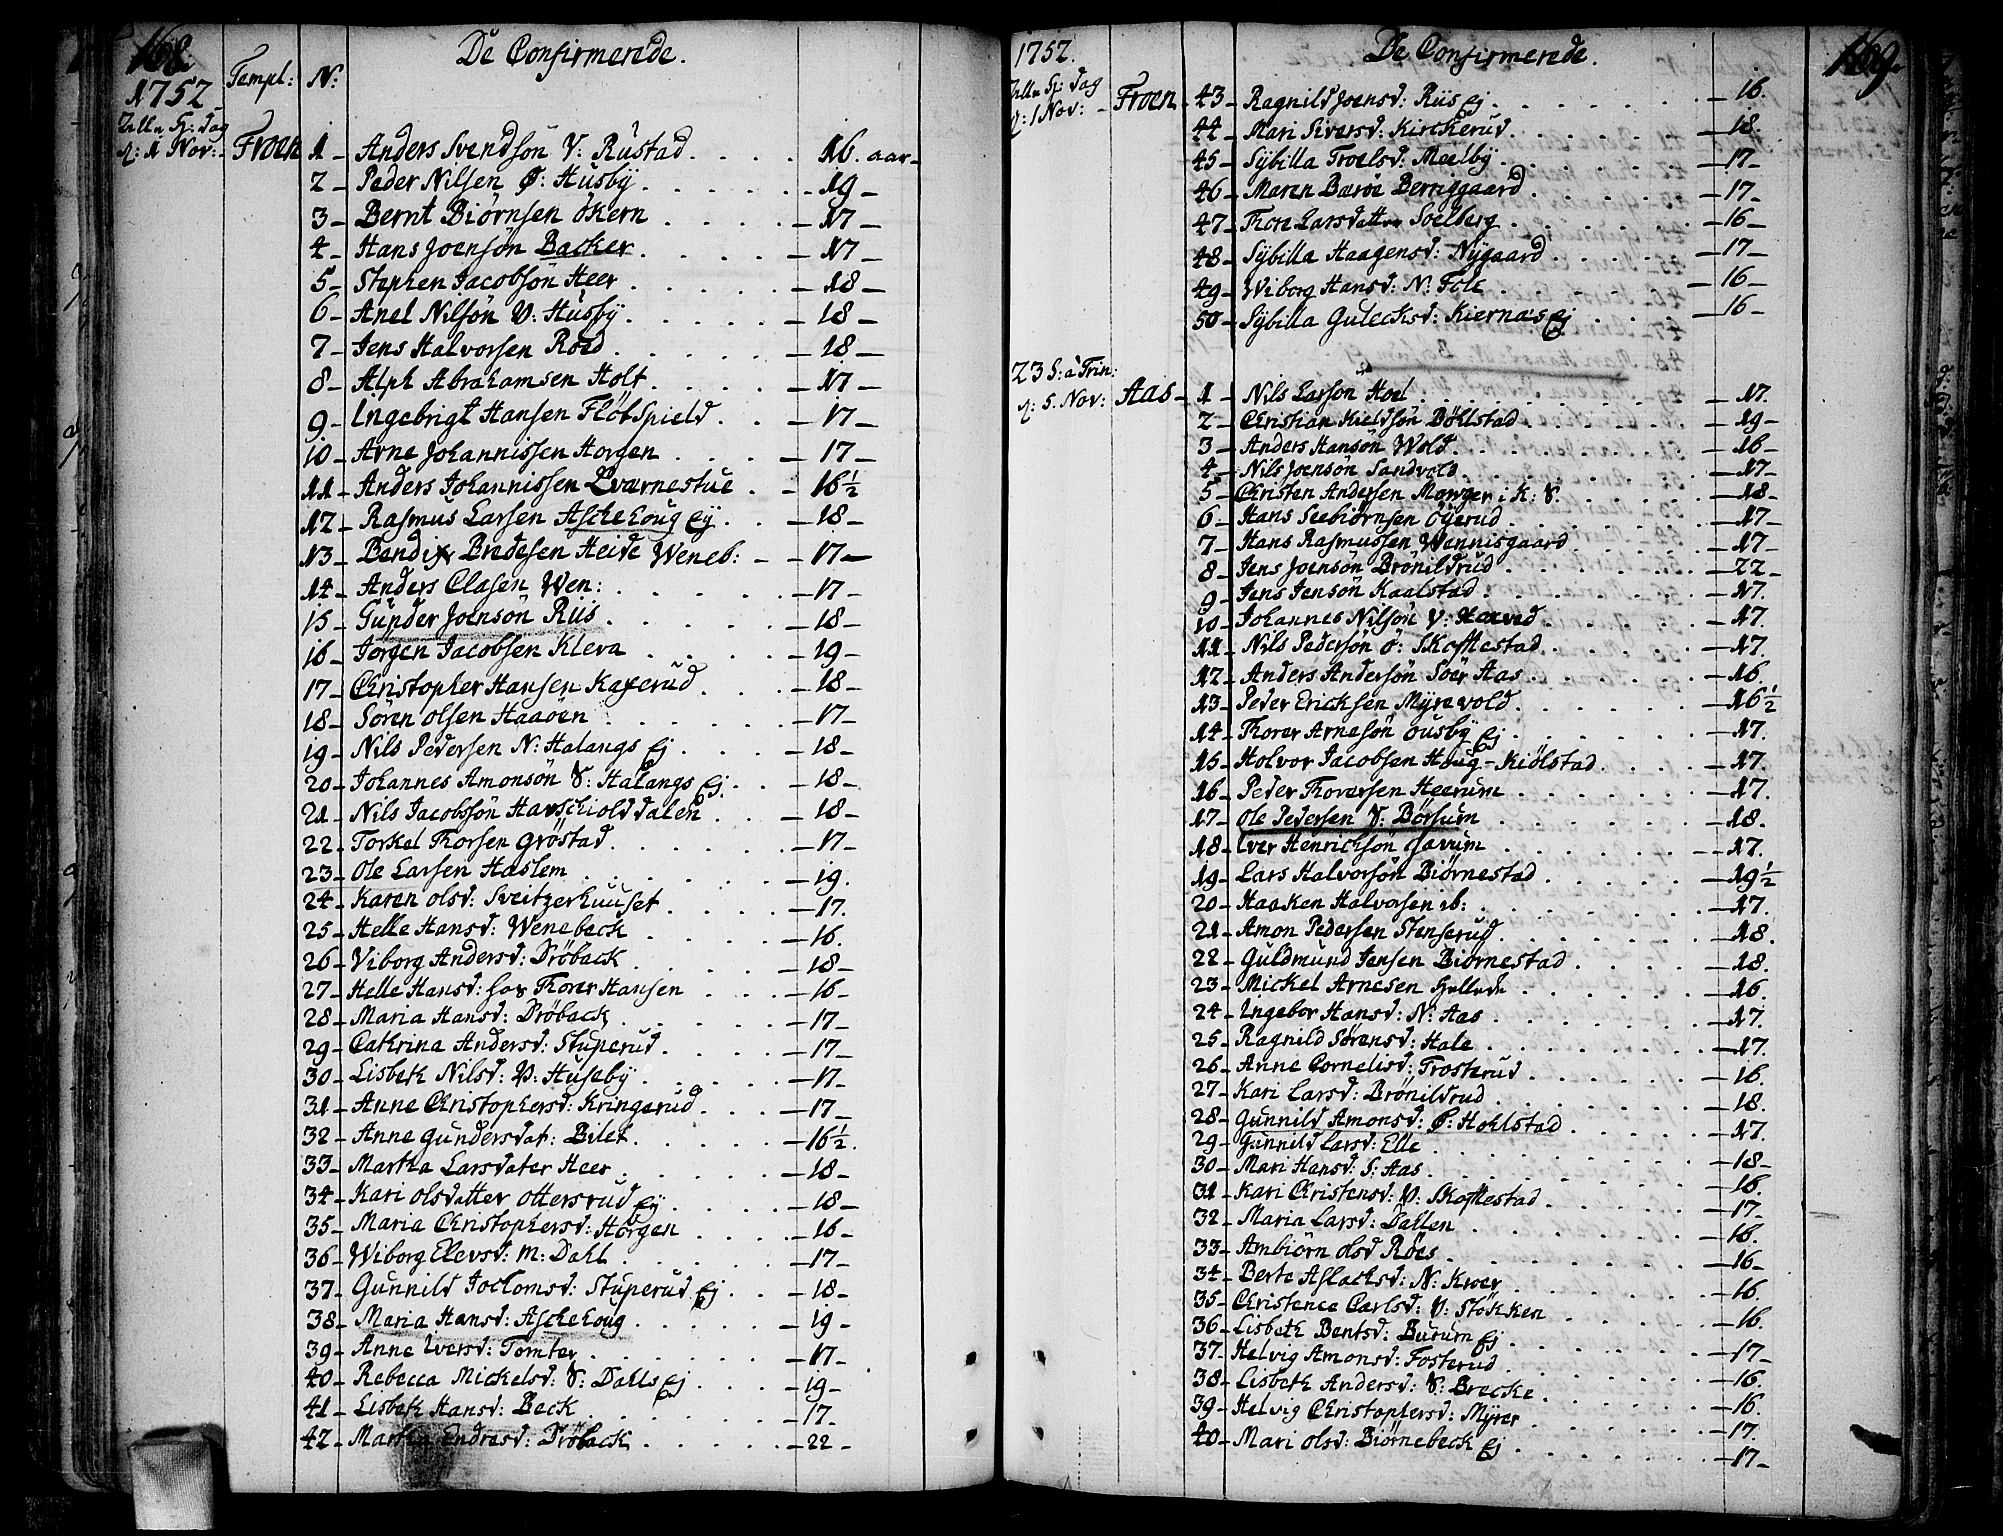 168.
De Confirmerede.
1752 Templ: No:
Alle H: Dag
d: 1 Nov: Froen 1 - Anders Svendsön V: Rustad . . . 16. aar
2 - Peder Nilsen Ø: Husbÿ . . . 19 -
3 - Bernt Biörnsen ökern . . . 17 -
4 - Hans Joensön Backer . . . 17 -
5 - Stephen Jacobsön Heer . . . 18 -
6 - Anel Nilsön V: Husbÿ . . . 18 -
7 - Jens Halvorsen Roed . . . 18 -
8 - Alph Abrahamsen Holt . . . 17 -
9 - Ingebrigt Hansen Flöbspield . . . 17 -
10 - Arne Johannissen Horgen . . . 17 -
11 - Anders Johannissen Qvarnestue . . . 16½
12 - Rasmus Larsen Aschehoug Eÿ . . . 18 -
13 - Bendix Bredesen Heide Weneb: - 17 -
14 - Anders Clasen Wen: . . . 17 -
15 - Gunder Joensön Riis . . . 18 -
16 - Jörgen Jacobsen Kleva . . . 19 -
17 - Christopher Hansen Kaxerud . . . 18 -
18 - Sören olsen Haaöen . . . 17 -
19 - Nils Pedersen N: Halangs Ej . . . 18 -
20 - Johannes Amonsön V: Halangs Ej . . . 18 -
21 - Nils Jacobsön Hauschiold dalen . . . 18 -
22 - Torkel Thorsen gröstad . . . 17 -
23 - Ole Larsen Haslem . . . 19.
24 - Karen olsd: Sveitzerhuuset . . . 17.
25 - Helle Hansd: Wenebeck . . . 16.
26 - Viborg Andersd: Dröback . . . 18 -
27 - Helle Hansd: hos Thorer Hansen . . . 16 -
28 - Maria Hansd: Dröback . . . 17 -
29 - Cathrina Andersd: Stuperud . . . 17 -
30 - Lisbeth Nilsd: V: Husebÿ . . . 17 -
31 - Anne Christophersd: Kringerud . . . 17 -
32 - Anne gundersdat: Bilet . . . 16½.
33 - Martha Larsdater Heer . . . 18 -
34 - Kari olsdatter ottersrud Eÿ . . . 18 -
35 - Maria Christophersd: Horgen . . . 16 -
36 - Wiborg Elevsd: M: Dahl . . . 17 -
37 - Gunnild Jochomsd: Stuperud Ej . . . 18 -
38 - Maria Hansd: Aschehoug . . . 19 -
39 - Anne Iversd: Tomter . . . 17 -
40 - Rebecca Mickelsd: V: Dahls Ej . . . 19 -
41 - Lisbeth Hansd: Beck . . . 17 -
42 - Martha Endresd: Dröback . . . 22 -
169.
1752. De Confirmerede.
Alle H: Dag
d: 1 Nov: Froen - 43 - Ragnild Joensd: Riis Ej . . . 16.
44 - Mari Siversd: Kirckerud . . . 18.
45 - Sÿbilla Troelsd: Meelbÿ . . . 17 -
46 - Maren Baröe Berriggaard . . . 17 -
47 - Thore Larsdatter Solberg . . . 16 -
48 - Sÿbilla Haagensd: Nÿgaard . . . 17 -
49 - Wiborg Hansd: N: Fole . . . 16 -
50 - Sÿbilla Gulecksd: Kiernæs Ej . . . 16 -
23 S: a Trin:
d: 5. Nov: Aas - 1 - Nils Larson Hoel . . . 17.
2 - Christian Kieldsön Böhlstad . . . 19 -
3 - Anders Hansön Wold . . . 16 -
4 - Nils Joensön Sandvold . . . 17 -
5 - Christen Andersen Monger i K: V. . . . 18 -
6 - Hans Seebiörnsen Öÿerud . . . 17 -
7 - Hans Rasmussen Wennisgaard . . . 17 -
8 - Jens Joensön Brönildrud . . . 22 -
9 - Jens Jensön Kaalstad . . . 17.
10 - Johannes Nilsön V: Haaved . . . 17.
11 - Nils Pedersön ö: Skoftestad . . . 17.
12 - Anders Andersön Söer Aas . . . 16.
13 - Peder Ericksen Mÿrevold . . . 16½
14 - Thorer Arnesön ousbÿ Ej . . . 17.
15 - Holvor Jacobsen Houg-Kiölstad . . . 17.
16 - Peder Thorersen Heerum . . . 17.
17 - Ole Pedersen V: Börsum . . . 18.
18 - Iver Henricksön Garum . . . 17.
19 - Lars Halvorsön Biörnestad . . . 19½
20 - Haaken Halvorsen ib: . . . 17.
21 - Amon Pedersen Stenserud . . . 18.
22 - Guldmund Jensen Biörnestad . . . 18.
23 - Mickel Arnesen Hellede . . . 16.
24 - Ingebor Hansd: N: Aas . . . 17.
25 - Ragnild Sörensd: Hale . . . 17.
26 - Anne Cornelisd: Frosterud . . . 16.
27 - Kari Larsd: Brönildrud . . . 18.
28 - Gunnild Amonsd: Ø: Hohlstad . . . 17.
29 - Gunnild Larsd: Elle . . . 18 -
30 - Mari Hansd: S: Aas . . . 16.
31 - Kari Christensd: V: Skoftestad . . . 17 -
32 - Maria Larsd: Dallen . . . 16.
33 - Ambiörn olsd Röes . . . 16 -
34 - Berte Aslachsd: N: Kroer . . . 16.
35 - Christence Carlsd: V: Stökken . . . 16.
36 - Lisbeth Bentsd: Burum Ej . . . 17 -
37. Helvig Amonsd: Fosterud . . . 16 -
38 - Lisbeth Andersd: V: Brecke . . . 16
39 - Helvig Christophersd: Mÿrer . . . 17.
40 - Mari olsd: Biörnebeck Ej . . . 17 -